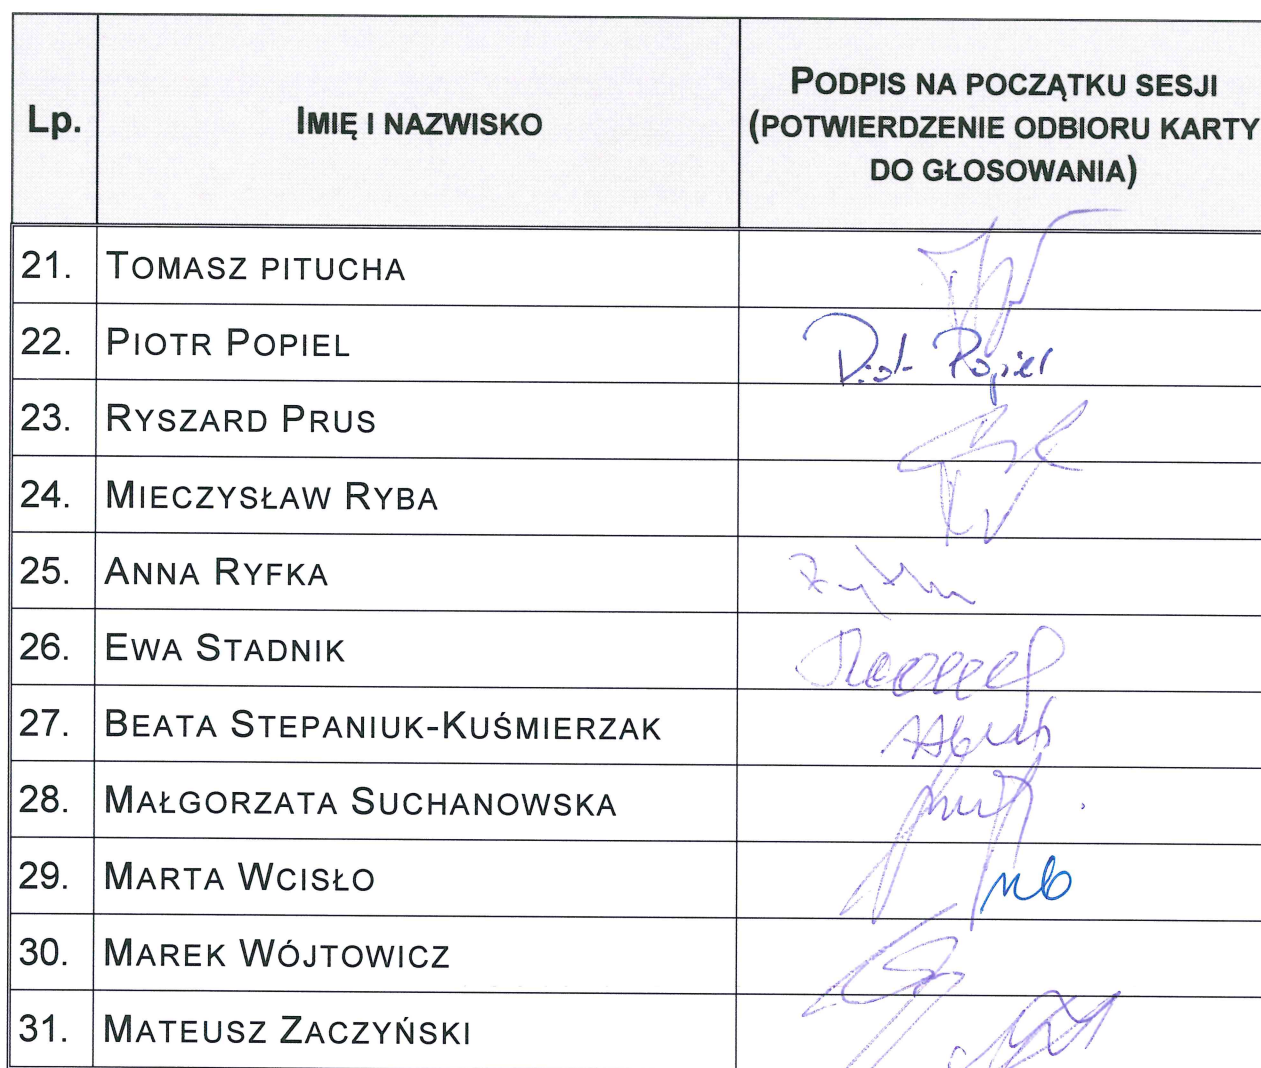 Lp.
IMIĘ I NAZWISKO
PODPIS NA POCZĄTKU SESJI
(POTWIERDZENIE ODBIORU KARTY
DO GŁOSOWANIA)
21. TOMASZ PITUCHA
22. PIOTR POPIEL Piotr Popiel
23. RYSZARD PRUS
24. MIECZYSŁAW RYBA
25. ANNA RYFKA
26. EWA STADNIK
27. BEATA STEPANIUK-KUŚMIERZAK
28. MAŁGORZATA SUCHANOWSKA
29. MARTA WCISŁO nb
30. MAREK WÓJTOWICZ
31. MATEUSZ ZACZYŃSKI